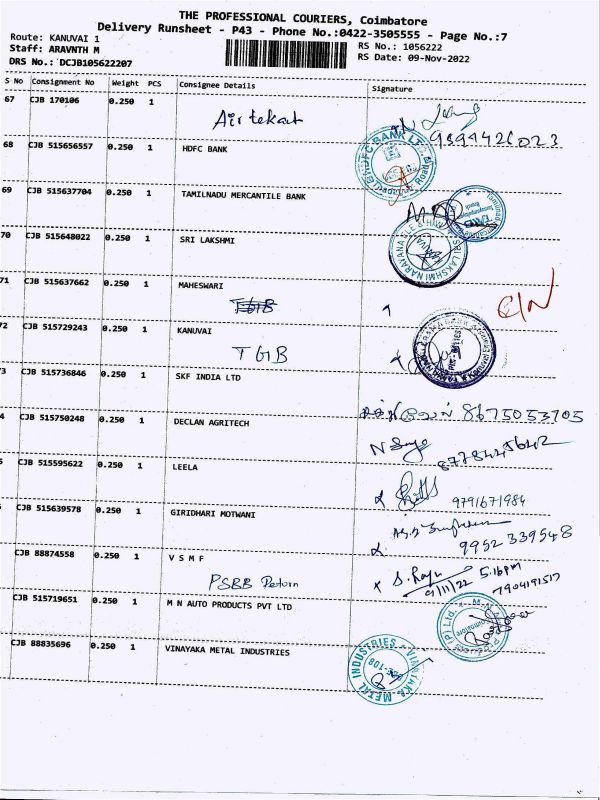 THE PROFESSIONAL COURIERS, Coimbatore
Delivery Runsheet - P43 - Phone No.:0422-3505555 - Page No.:7
Route: KANUVAI 1
RS No.: 1056222
Staff: ARAVNTH M
RS Date: 09-Nov-2022
DRS No.: DCJB105622207
S No Consignment No Weight PCS Consignee Details Signature
67 CJB 170106 0.250 1 Airtekart
9894426023
68 CJB 515656557 0.250 1 HDFC BANK
HDFC BANK LT
69 CJB 515637704 0.250 1 TAMILNADU MERCANTILE BANK
70 CJB 515648022 0.250 1 SRI LAKSHMI
SRI LAKSHMI NARAYANA
71 CJB 515637662 0.250 1 MAHESWARI
TGB
C/N
72 CJB 515729243 0.250 1 KANUVAI
TGB
3 CJB 515736846 0.250 1 SKF INDIA LTD
8675053705
4 CJB 515750248 0.250 1 DECLAN AGRITECH
5 CJB 515595622 0.250 1 LEELA
9791671984
CJB 515639578 0.250 1 GIRIDHARI MOTWANI
9952339548
CJB 88874558 0.250 1 V S M F
PSBB Return
S. Raju 5.16pm
9/11/22 7904191517
CJB 515719651 0.250 1 M N AUTO PRODUCTS PVT LTD
CJB 88835696 0.250 1 VINAYAKA METAL INDUSTRIES
VINAYAKA METAL INDUSTRIES